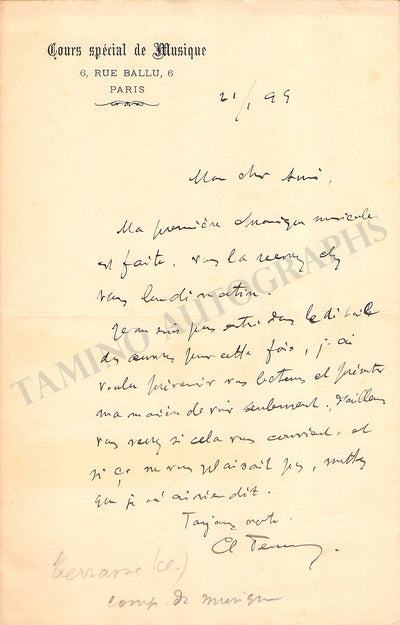 Cours spécial de Musique
6, RUE BALLU, 6
PARIS
21/1 99
Mon cher Ami,
Ma première chronique musicale
est faite, vous la recevrez chez
vous lundi matin.
Je ne suis pas entré dans le détail
des œuvres pour cette fois, j'ai
voulu prévenir vos lecteurs et présenter
ma manière de voir seulement. D'ailleurs
vous verrez si cela vous convient, et
si ça ne vous plaisait pas, mettez
que je n'ai rien dit.
Toujours votre
Cl Terrasse
TAMINO AUTOGRAPHS
Terrasse (Cl.)
comp. de musique